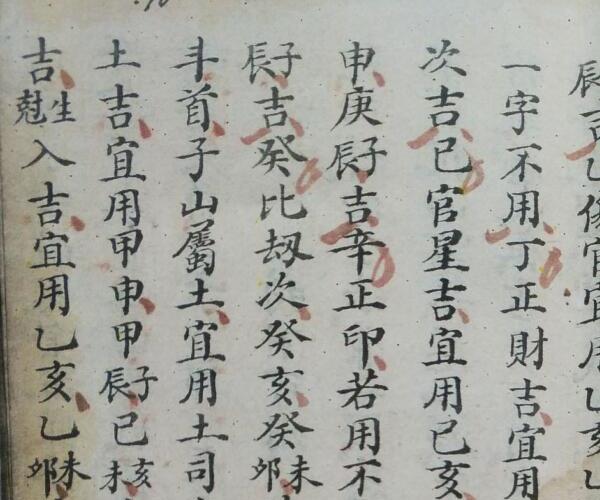 辰吉乙傷官宜用乙亥乙
一字不用丁正財吉宜用
次吉己官星吉宜用己亥
申庚辰子吉辛正印若用不
辰子吉癸比刼次癸亥癸卯未
斗首子山屬土宜用土司
土吉宜用甲申甲辰子己未亥
吉尅生入吉宜用乙亥乙卯未